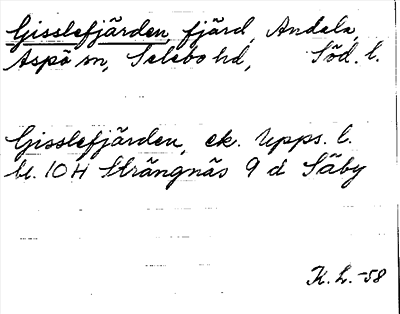 Gisslefjärden, fjärd, Andela,
Aspö sn, Selebo hd, Söd. l.
Gisslefjärden, ek. Upps. l.
bl. 10H Strängnäs 9 d Säby
K. L. -58